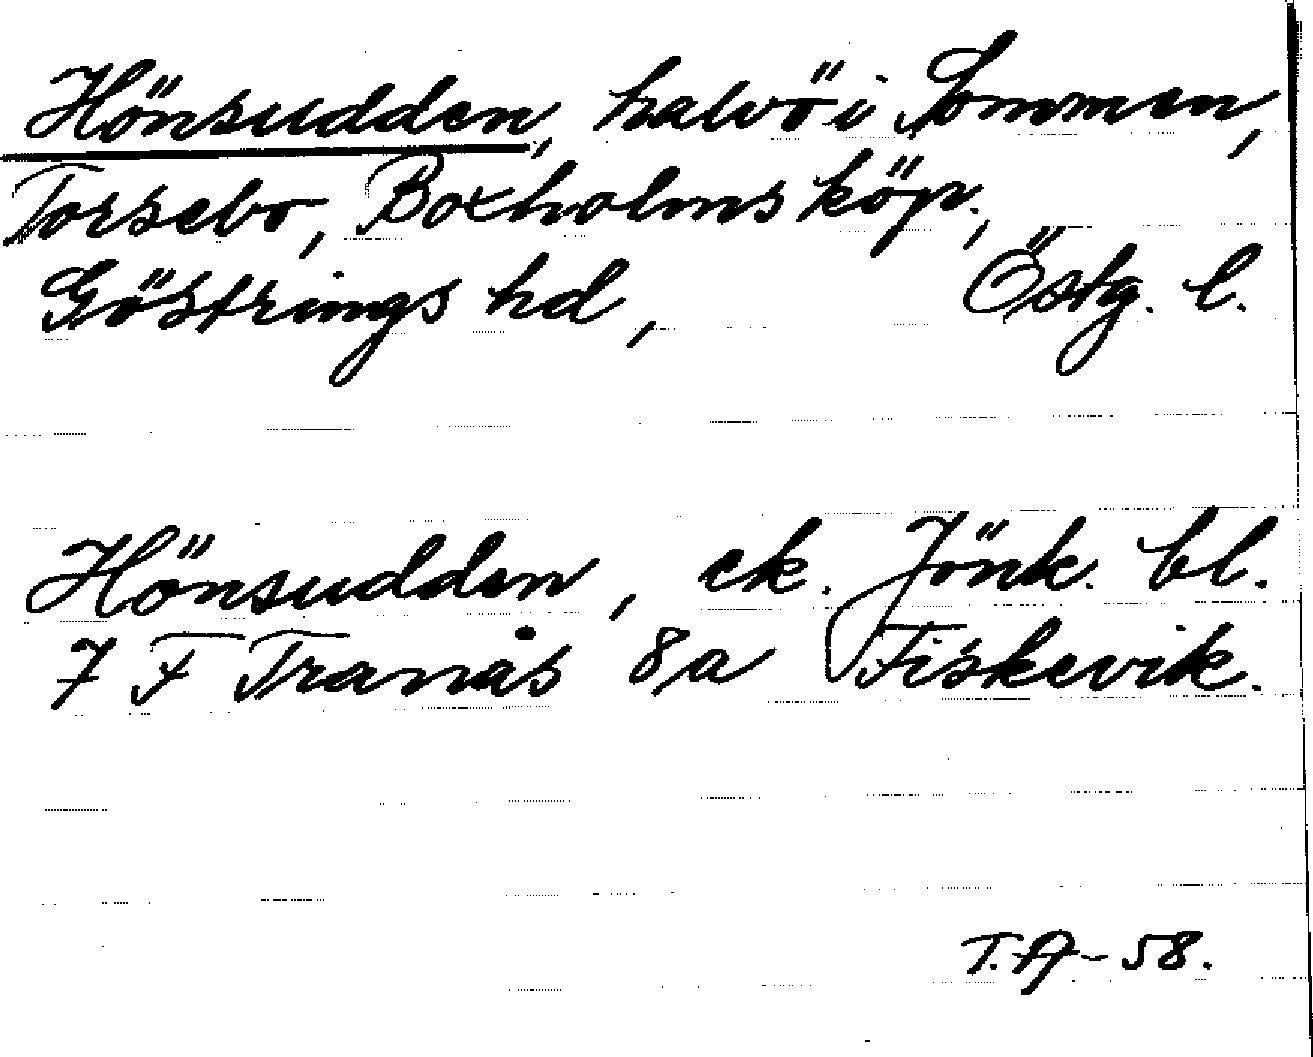 Hönsudden, halvö i Sommen,
Torsebo, Boxholms köp.,
Göstrings hd, Östg. l.
Hönsudden, ek. Jönk. bl.
7 F Tranås 8a Fiskevik.
T.A-58.